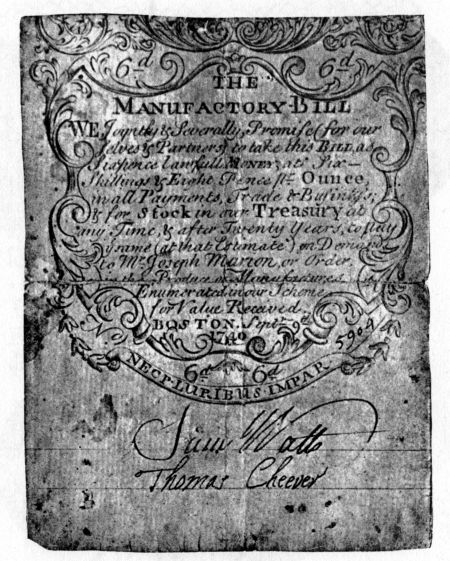 6d 6d
THE
MANUFACTORY-BILL
WE Joyntly & Severally, Promise (for our
selves & Partners) to take this BILL as
Sixpence lawfull MONEY, at Six-
Shillings & Eight Pence pr. Ounce,
in all Payments, Trade & Business;
& for Stock in our Treasury at
any Time, & after Twenty Years, to pay
ye same (at that Estimate) on Demand
to Mr. Joseph Marion, or Order
in the Produce or Manufactures
Enumerated in our Scheme,
for Value Received.
BOSTON, Septr. 9
1740
No 5904
6d 6d
NEC PLURIBUS IMPAR
Sam Watts
Thomas Cheever